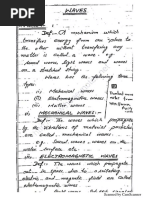 WAVES
Def:- A mechanism which
transfers energy from one place to
the other without transferring any
matter is called a wave. For example
sound waves, light waves and waves on
a stretched string.
Waves has the following three
types:
(i) Mechanical waves
(ii) Electromagnetic waves
(iii) Matter waves
MECHANICAL WAVES:-
Def:- The waves which propagate
by the vibrations of material particles
are called mechanical waves.
e.g. Sound waves, waves on the
water surface etc.
ELECTROMAGNETIC WAVES
Def:- The waves which propagate
out in space due to
electric and magnetic field are called
electromagnetic waves.
Scanned by CamScanner